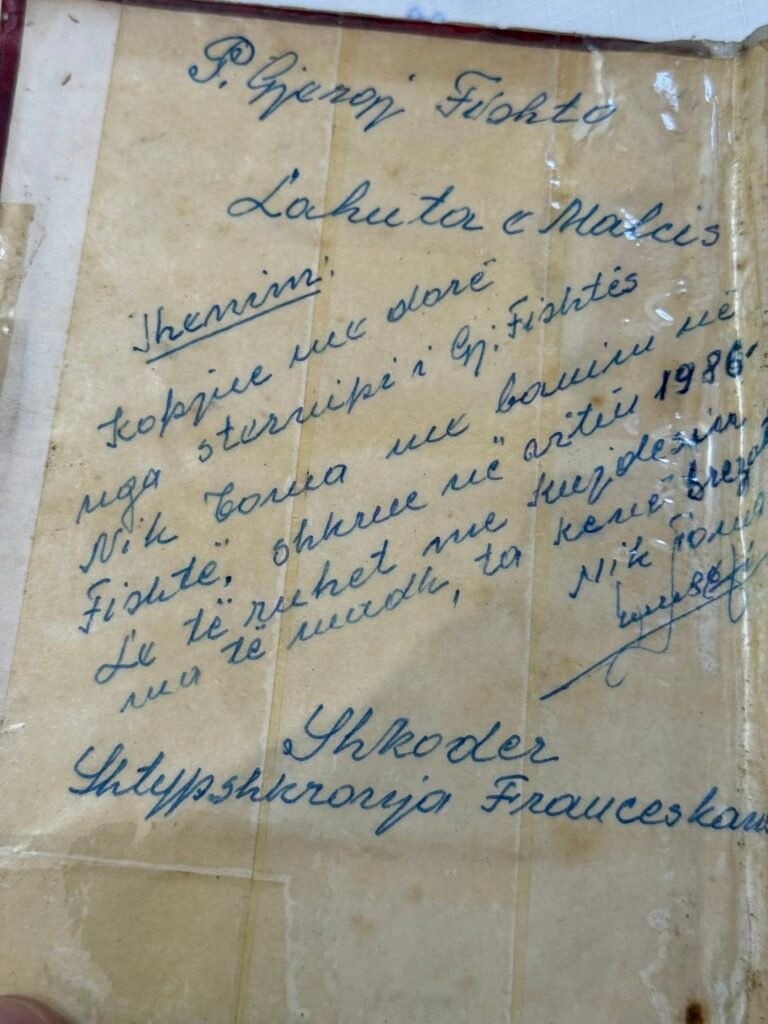 P. Gjergj Fishta
Lahuta e Malcis
Shenim:
Kopjue me dorë
nga sternipi i Gj. Fishtës
Nik Toma me banim në
Fishtë, shkrue në vitin 1986
Le të ruhet me kujdesin
ma të madh, ta kenë
Nik Toma
Shkoder
Shtypshkronja